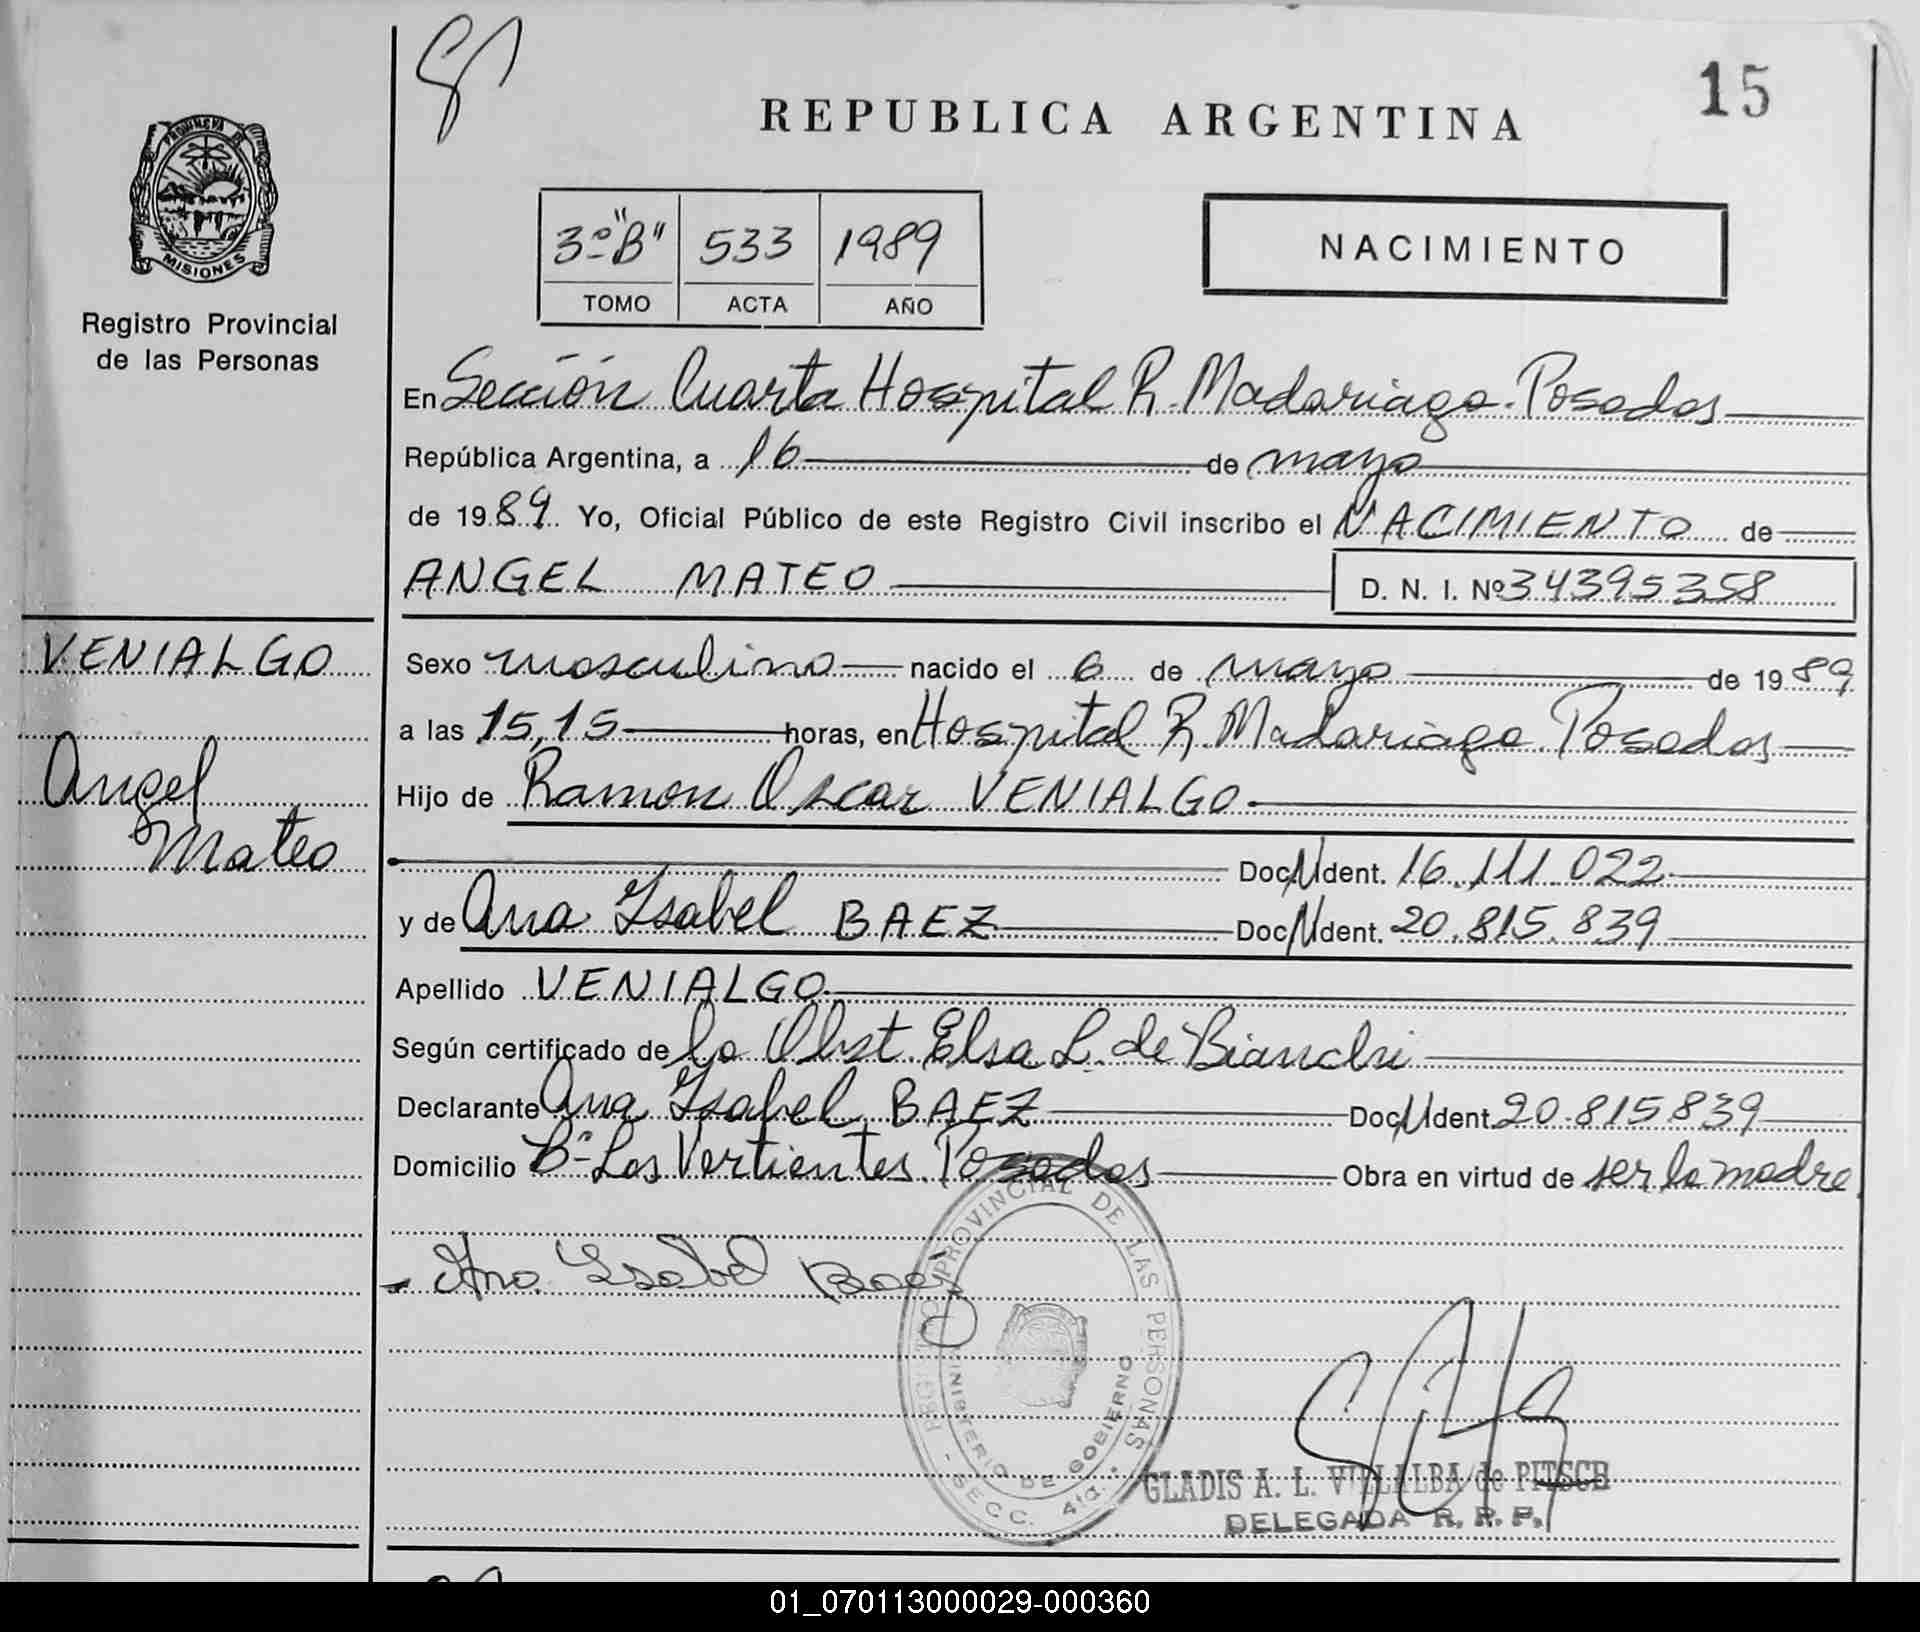 15
REPUBLICA ARGENTINA
PROVINCIA DE
MISIONES
Registro Provincial
de las Personas
3º "B" 533 1989
TOMO ACTA AÑO
NACIMIENTO
En Sección Cuarta Hospital R. Madariaga. Posadas
República Argentina, a 16 de mayo
de 1989. Yo, Oficial Público de este Registro Civil inscribo el NACIMIENTO de
ANGEL MATEO D. N. I. Nº 34395358
VENIALGO
Angel
Mateo
Sexo masculino nacido el 6 de mayo de 1989
a las 15,15 horas, en Hospital R. Madariaga. Posadas
Hijo de Ramon Oscar VENIALGO.
Doc. N. Ident. 16.111.022
y de Ana Ysabel BAEZ Doc. N. Ident. 20.815.839
Apellido VENIALGO.
Según certificado de la Obst. Elsa L. de Bianchi
Declarante Ana Ysabel BAEZ Doc. N. Ident. 20.815839
Domicilio Bº Las Vertientes. Posadas Obra en virtud de ser la madre
Ana Ysabel Baez
REGISTRO PROVINCIAL DE LAS PERSONAS
MINISTERIO DE GOBIERNO
- SECC. 4ta. -
GLADIS A. L. VILLALBA de PITSCH
DELEGADA R. R. P.
01_070113000029-000360